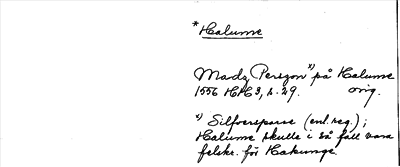 * Halume
Madz Perszon *) på Halume
1556 HH 3, s. 29. orig.
*) Silfversparre (enl. reg.);
Halume skulle i så fall vara
felskr. för Hakunge.